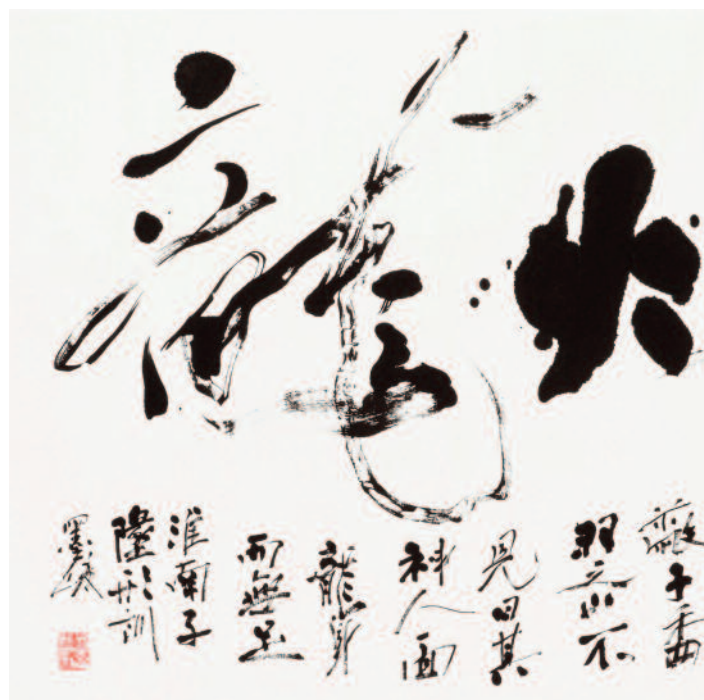 火龍
蔽于委
羽之山不
見日其
神人面
龍身
而無足
淮南子
墬形訓